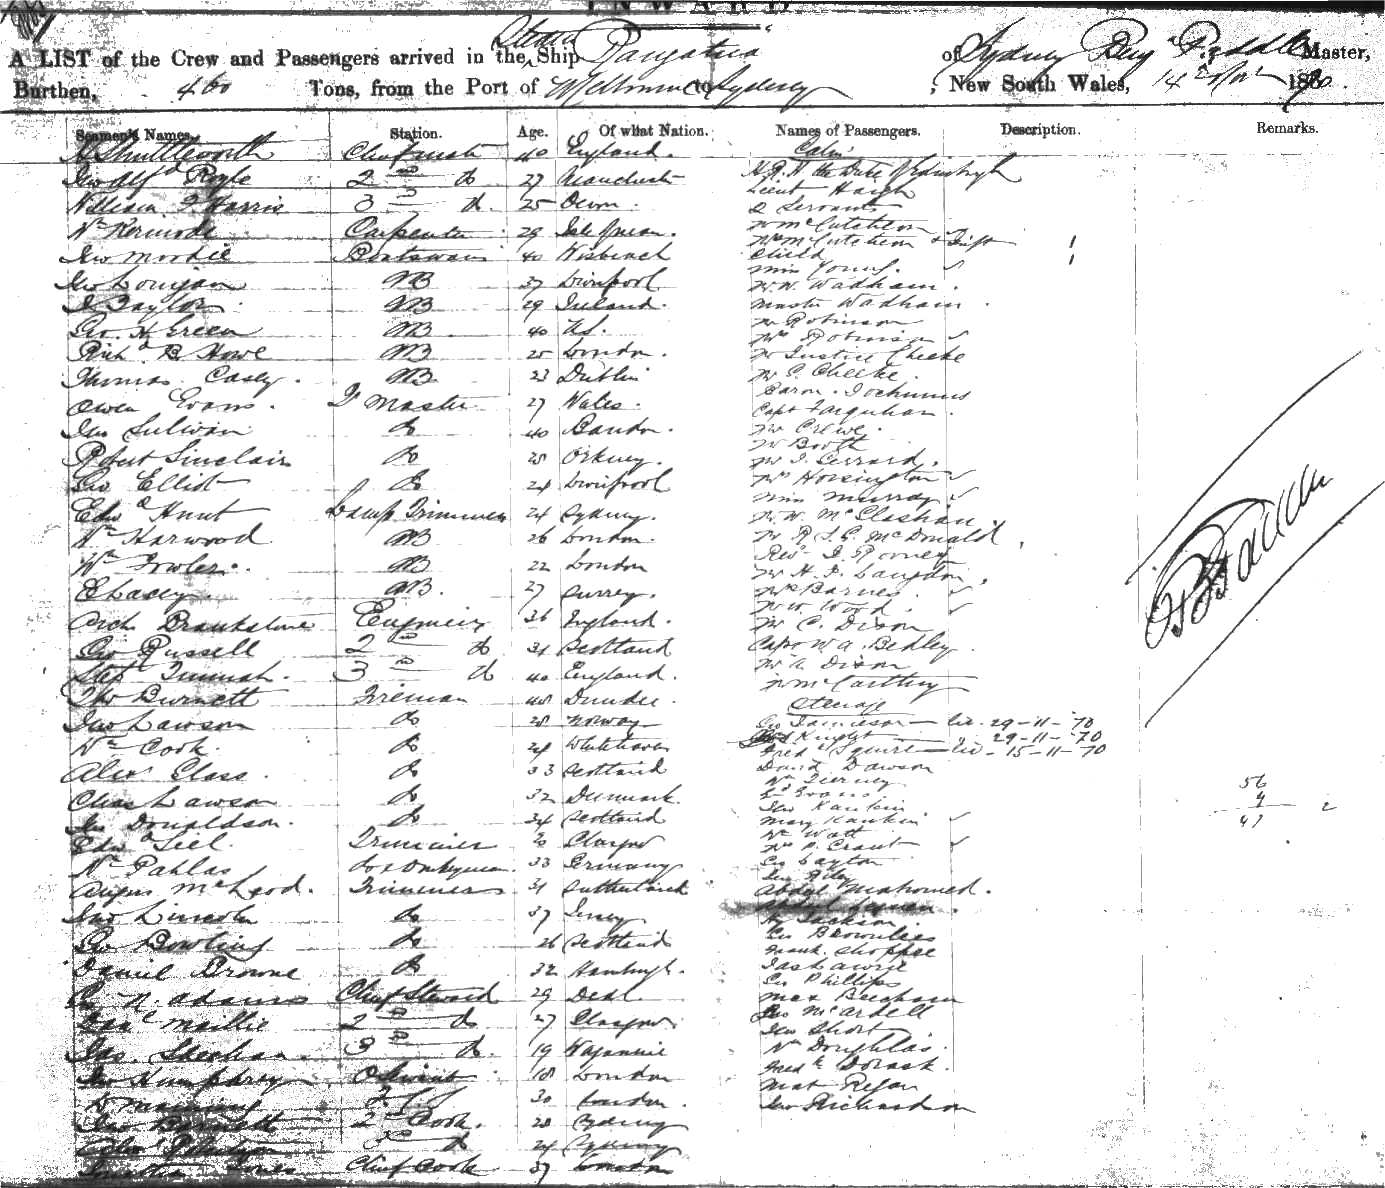 INWARD
A LIST of the Crew and Passengers arrived in the Steam Ship Rangatira of Sydney Benj Paddle Master,
Burthen, 460 Tons, from the Port of Melbourne to Sydney, New South Wales, 14 Nov 1870
Seamen's Names. Station. Age. Of what Nation. Names of Passengers. Description. Remarks.
Shuttleworth Chief mate 40 England.
Jno Alf Pogle 2nd do 27 Manchester
William Harris 3rd do 25 Devon.
Wm Kermode Carpenter 29 Isle of man.
Jno Moodie Boatswain 40 Wisbeach
Jno AB 37 Liverpool
Taylor AB 29 Ireland.
Geo. H Green AB 40 US.
Richd B Howe AB 25 London.
Thomas Casey. AB 23 Dublin
Owen Evans. Qr Master 27 Wales.
Jno Sulivan do 40 Bandon.
Robert Sinclair do 25 Orkney.
Geo Elliot do 24 Liverpool
Edwd Hunt Lamp Trimmer 24 Sydney.
Wm Harwood AB 26 London.
Wm Fowler. AB 22 London
E Lacey. AB. 27 Surrey.
Arch Engineer 36 England.
Geo Russell 2nd do 31 Scotland
Step 3rd do 40 England.
Tho Burnett Fireman 48 Dundee.
Jno Lawson do 28 Norway
Wm Cook. do 24 Whitehaven
Alexr Glass. do 33 Scotland
Chas Lawson do 32 Denmark.
Jno Donaldson. do 34 Scotland
Edwd Teel. Trimmer Glasgow
Wm Pahlas do & Donkeyman. 33 Germany
Angus McLeod. Trimmer 31 Sutherland
Jno Lincoln do 37 Jersey
Geo Bowling do 26 Scotland
Daniel Browne do 32 Hamburgh.
Geo N. Adams Chief Steward 29 Deal.
Maillie 2nd do 27 Glasgow
Jas. Sheehan. 3rd do. 19
Jno Humphrey 18 London
Manning 30 London.
Jno Barnett 2nd Cook. 28 Sydney
3rd do 24 Sydney
Jonathan Chief Cook 37 London
Cabin
H.R.H the Duke of Edinburgh
Lieut Haigh
2 Servants
Mr McCutcheon
Mrs McCutcheon & Inft
Child
Miss Young.
W.W. Wadham.
Master Wadham
Mr Robinson
Mrs Robinson
Mr Justice Cheeke
Mr Cheeke.
Baron
Capt Farquhar.
Mr Crewe.
Mr Booth
Mr J. Gerrard.
Mrs Horsington
Miss Murray
Mr W. McClashan
Mr R. McDonald
Revd J Rooney
Mr H. Langdon.
Mrs Barnes.
Mr W. Wood.
Mr C. Dixon
Capt W A. Bedley.
Mr A. Dixon
Mr McCarthy
Steerage
Geo Jamieson 29-11-70
Knight 29-11-70
Fredk Squire 15-11-70
David Dawson
Wm Tierney
Evans
Jno Rankin
Mary Rankin
Wm Watt
Mrs P. Grant
Geo Layton
Jno Riley
Abdul Mahomed.
Abdul
Jackson.
Geo Brownlees
Frank Shoppee
Jas Lawrie
Geo Phillips
Max
Jas McArdell
Jno Short
Wm Doughlas.
Fredk Dorask.
Mat Regan
Jno Richardson
56
9
47 2